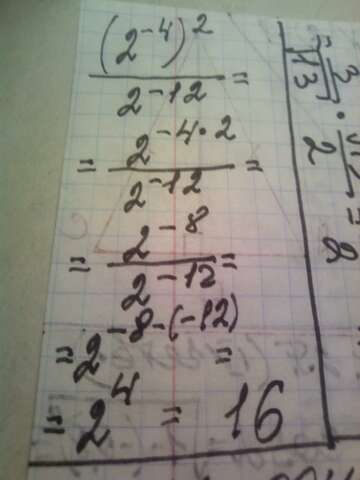 (2^-4)^2 / 2^-12 =
= 2^-4·2 / 2^-12 =
= 2^-8 / 2^-12 =
= 2^-8-(-12) =
= 2^4 = 16